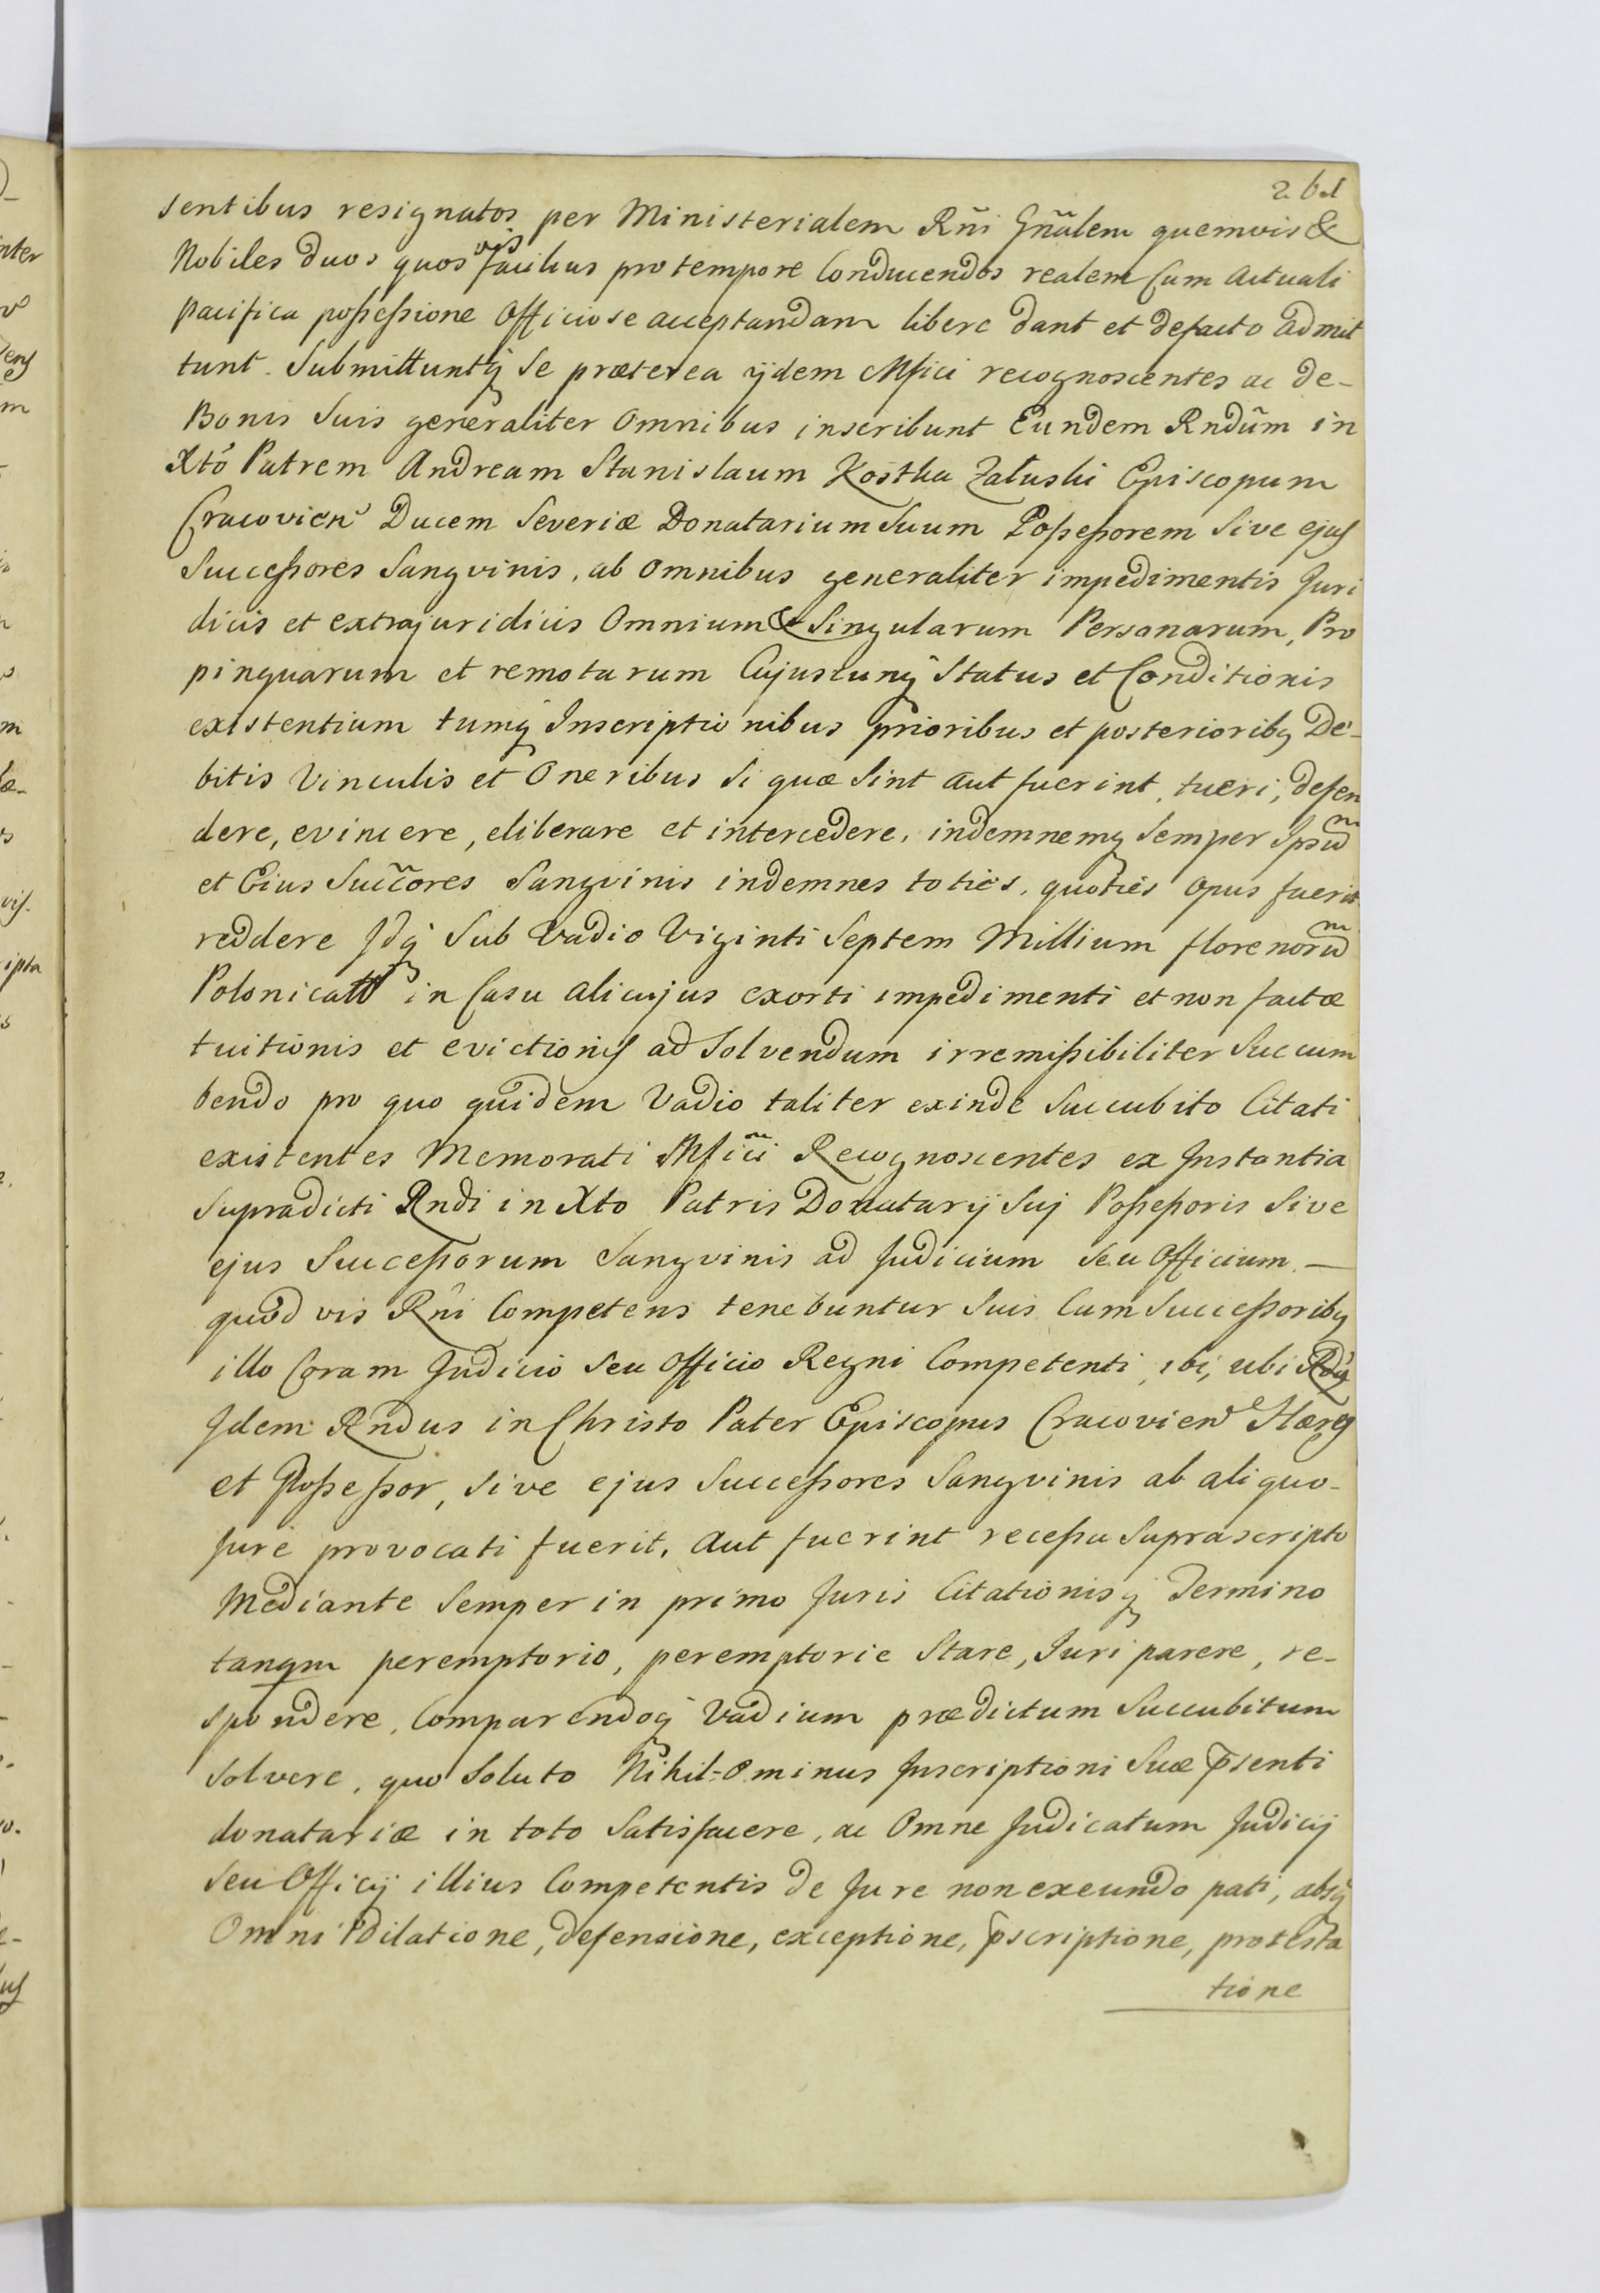 sentibus resignatos per Ministerialem Rñi Gñalem quemvis &
Nobiles duos quosvis facilius pro tempore Conducendos realem Cum Actuali
pacifica poßeßione Officiose acceptandam libere dant et defacto admit
tunt. Submittuntq̃ Se præterea ijdem Mfici recognoscentes ac de-
Bonis Suis generaliter Omnibus inscribunt Eundem Rndũm in
Xtõ Patrem Andream Stanislaum Kostka Załuski Episcopum
Cracovien Ducem Severiæ Donatarium Suum Poßeßorem Sive ejus
Succeßores Sangvinis, ab Omnibus generaliter impedimentis Juri
dicis et extrajuridicis Omnium & Singularum Personarum, Pro
pinquarum et remotarum Cujuscunq̃ Status et Conditionis
existentium tumq̃ Inscriptionibus prioribus et posterioribq De-
bitis Vinculis et Oneribus Si quæ Sint aut fuerint, tueri, defen
dere, evincere, eliberare et intercedere, indemnemq Semper Ipsum
et Eius Succ̃ores Sangvinis indemnes toties, quoties Opus fuerit
reddere Jdq̃ Sub Vadio Viginti Septem Millium florenorum
Polonicall in Casu alicujus exorti impedimenti et non factæ
tuitionis et evictionis ad Solvendum irremißibiliter Succum
bendo pro quo quidem Vadio taliter exinde Succubito Citati
existentes Memorati Mfic̃i Recognoscentes ex Instantia
Supradicti Rndi in Xto Patris Donatarij Suj Poßeßoris Sive
ejus Succeßorum Sangvinis ad Judicium Seu Officium. —
quod vis Rñi Competens tenebuntur Suis Cum Succeßoribq
illo Coram Judicio Seu Officio Regni Competenti, ibi, ubi
Jdem Rndus in Christo Pater Episcopus Cracovien Hæres
et Poßeßor, Sive ejus Succeßores Sangvinis ab aliquo-
Jure provocati fuerit, Aut fuerint receßu Suprascripto
Mediante Semper in primo Juris Citationisq̃ Termino
tanqm peremptorio, peremptorie Stare, Juri parere, re-
spondere, Comparendoq̃ Vadium prædictum Succubitum
Solvere, quo Soluto Nihil=Ominus Inscriptioni Suæ p̃senti
donatariæ in toto Satisfacere, ac Omne Judicatum Judicij
Seu Officij illius Competentis de Jure non exeundo pati, absq̃
Omni Dilatione, defensione, exceptione, p̃scriptione, protesta
tione